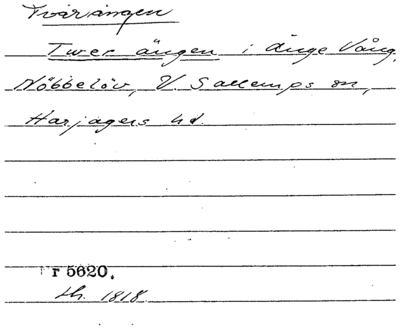 Tvärängen
Twer ängen i Änge Vång,
Nöbbelöv, V. Sallerups sn,
Harjagers hd.
r 5620.
1818